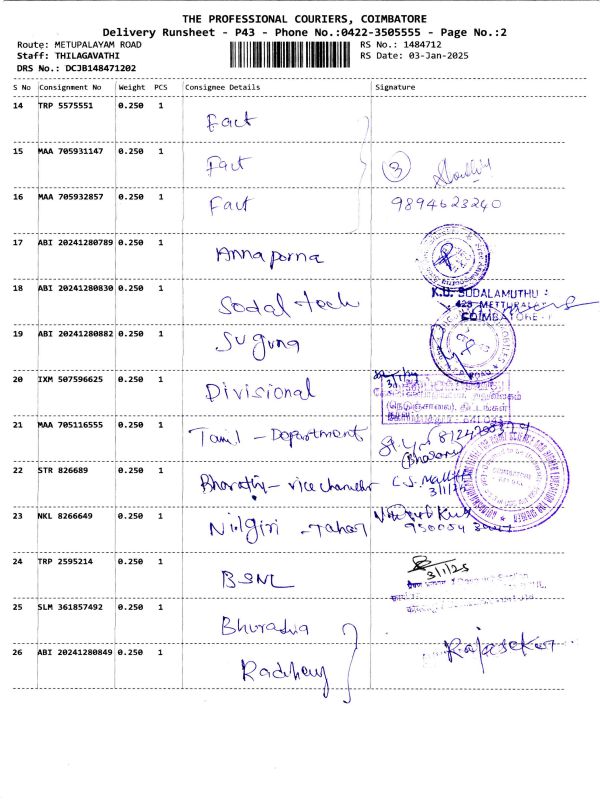 THE PROFESSIONAL COURIERS, COIMBATORE
Delivery Runsheet - P43 - Phone No.:0422-3505555 - Page No.:2
Route: METUPALAYAM ROAD RS No.: 1484712
Staff: THILAGAVATHI RS Date: 03-Jan-2025
DRS No.: DCJB148471202
S No Consignment No Weight PCS Consignee Details Signature
14 TRP 5575551 0.250 1 Fact
15 MAA 705931147 0.250 1 Fact 3
16 MAA 705932857 0.250 1 Fact 9894623240
17 ABI 20241280789 0.250 1 Annaporna
18 ABI 20241280830 0.250 1 Sodal tech K.U. SODALAMUTHU
COIMBATORE
19 ABI 20241280882 0.250 1 Suguna
20 IXM 507596625 0.250 1 Divisional
21 MAA 705116555 0.250 1 Tamil - Department
22 STR 826689 0.250 1 Bharathy - vice chancellor
3/1/25
23 NKL 8266649 0.250 1 Nilgiri - Tahor
24 TRP 2595214 0.250 1 BSNL 3/1/25
25 SLM 361857492 0.250 1
26 ABI 20241280849 0.250 1 Rajasekar